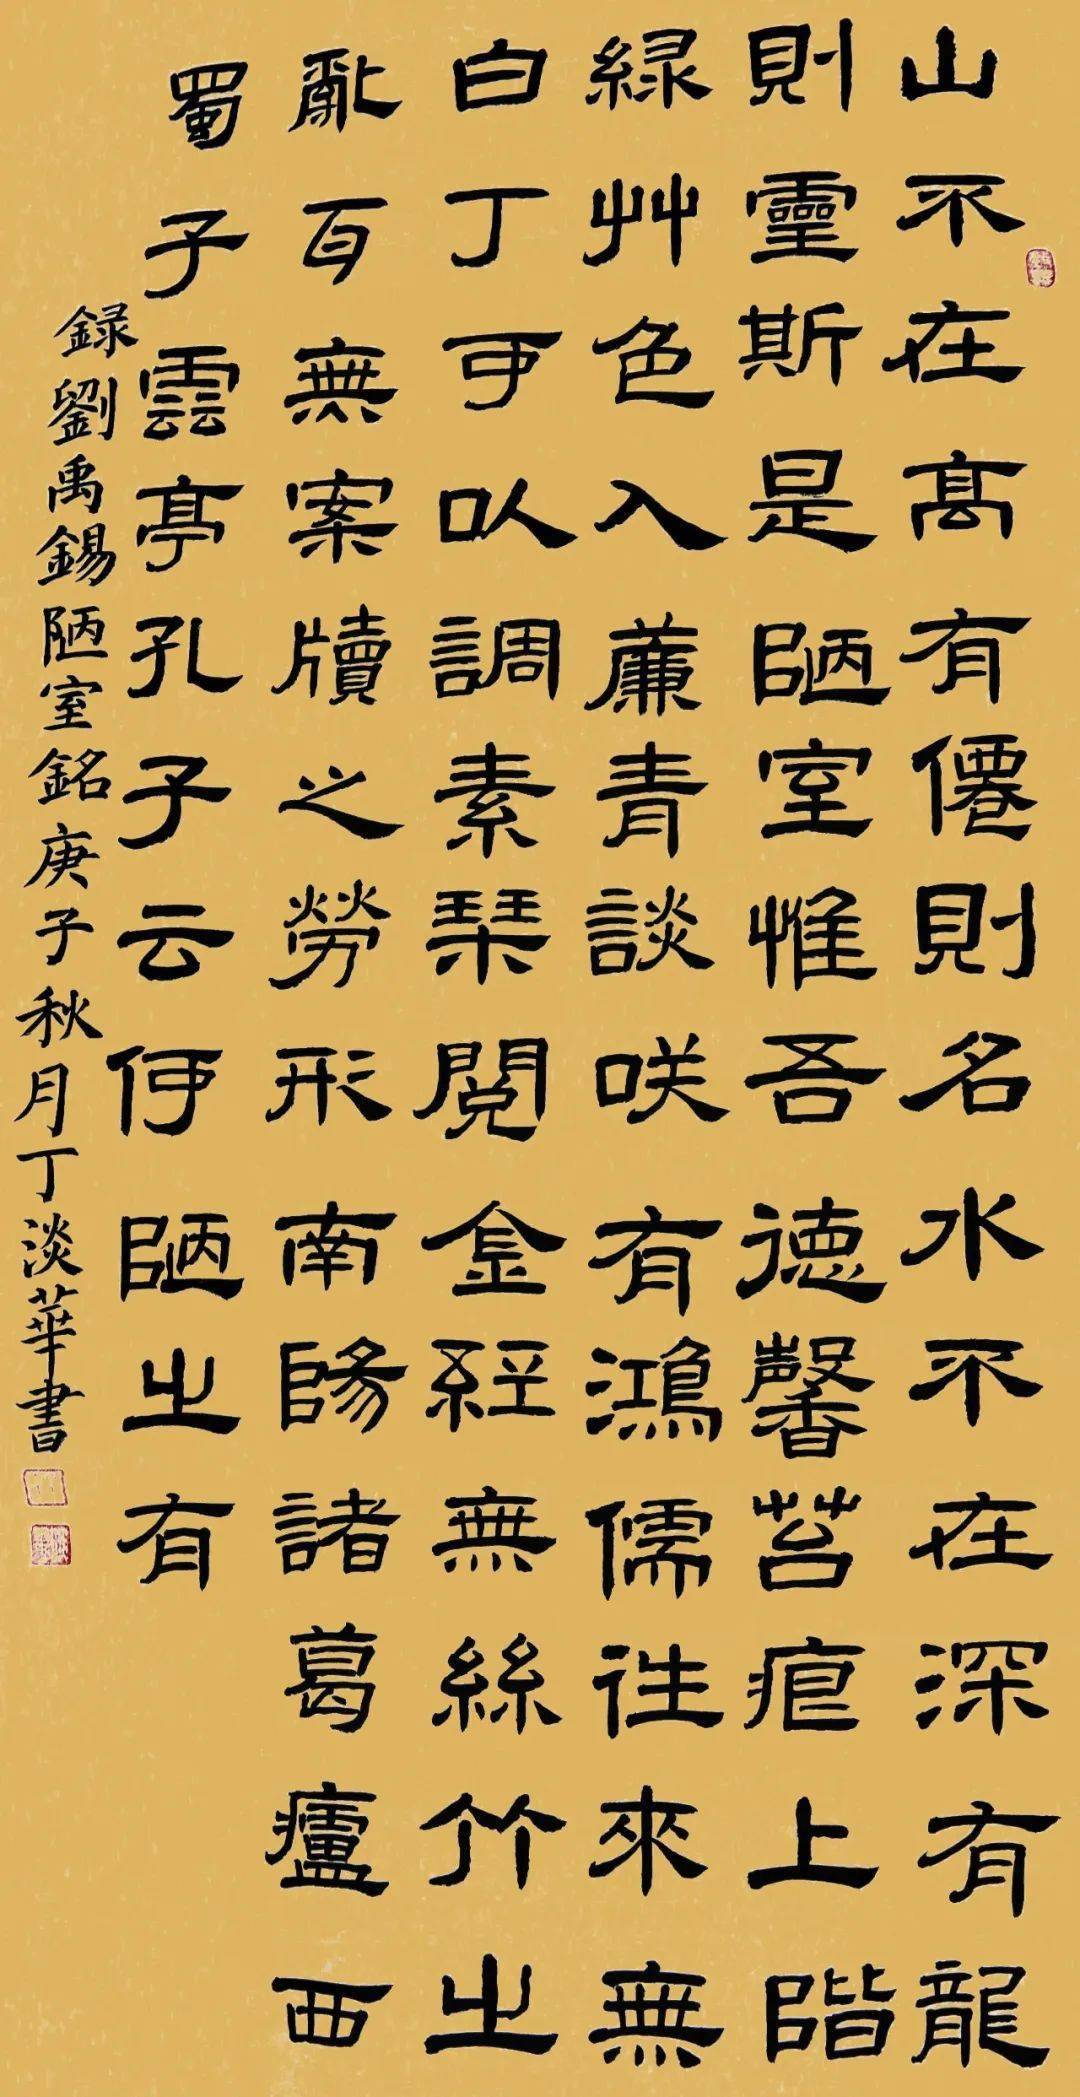 山不在高有僊則名水不在深有龍
則靈斯是陋室惟吾德馨苔痕上階
緑艸色入薕青談咲有鴻儒往來無
白丁可以調素琴閲金經無絲竹之
亂耳無案牘之勞形南陽諸葛廬西
蜀子雲亭孔子云何陋之有
録劉禹錫陋室銘庚子秋月丁淡華書